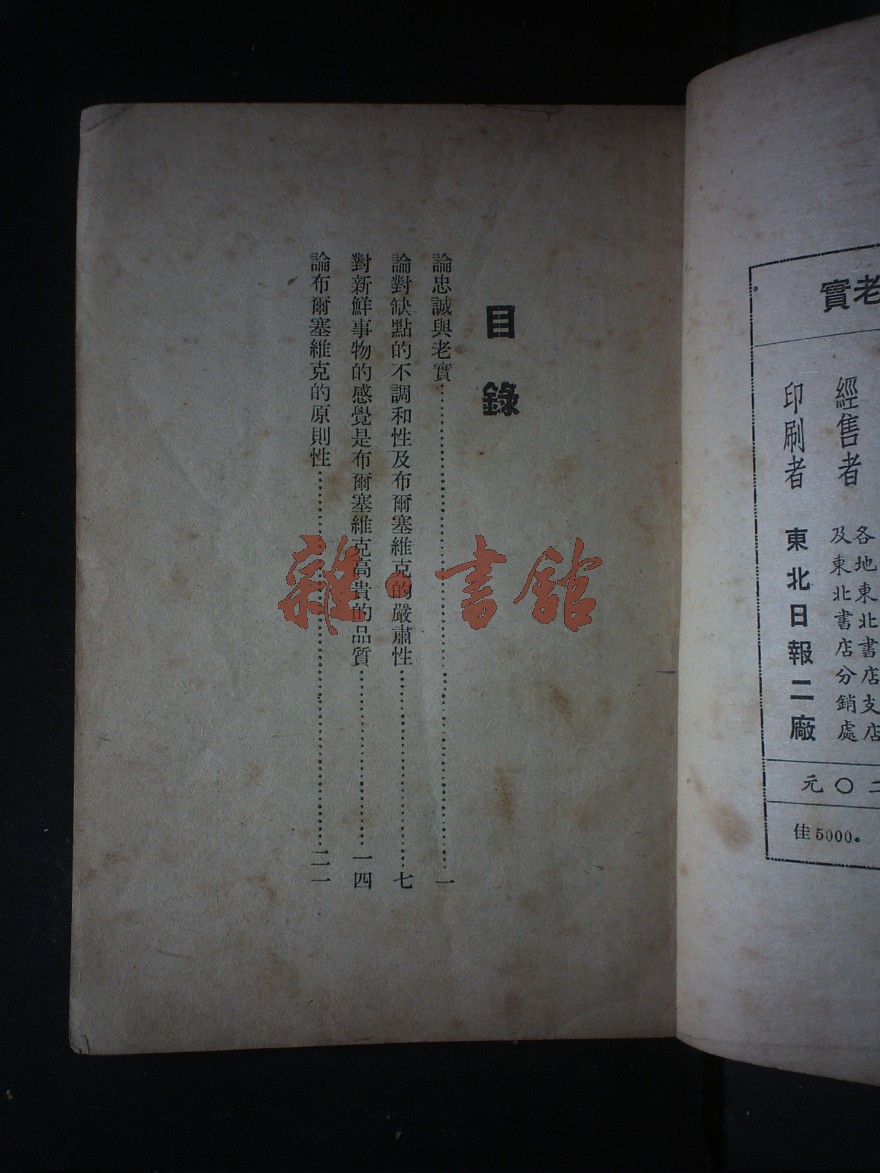 目錄
論忠誠與老實……一
論對缺點的不調和性及布爾塞維克的嚴肅性……七
對新鮮事物的感覺是布爾塞維克高貴的品質……一四
論布爾塞維克的原則性……二一
雜·書館
老實
各地東北書店支店
經售者
及東北書店分銷處
印刷者 東北日報二廠
二〇元
佳5000.